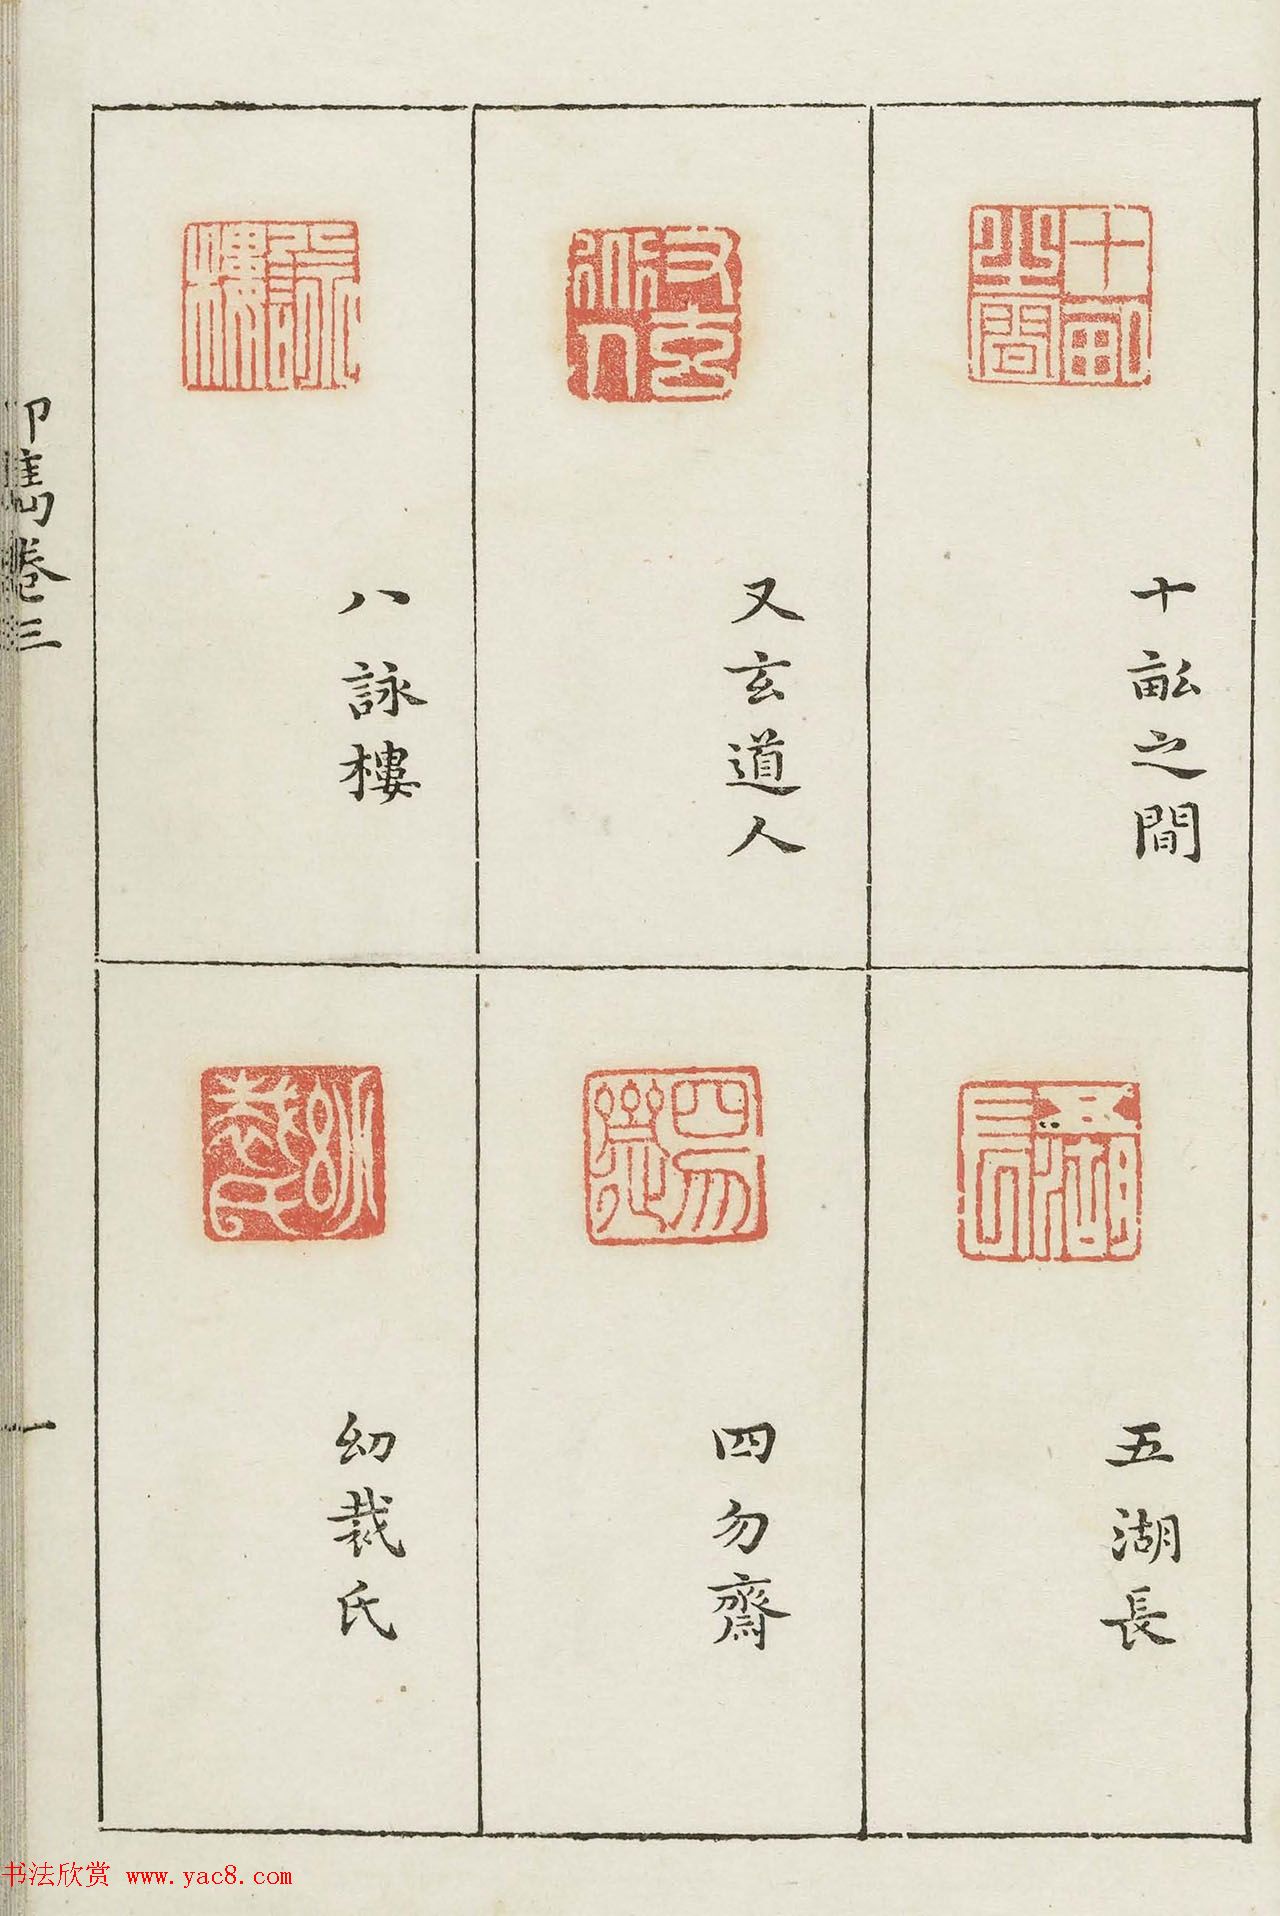 十畝之間
又玄道人
八詠樓
五湖長
四勿齋
幼裁氏
印雋卷三
一
书法欣赏 www.yac8.com